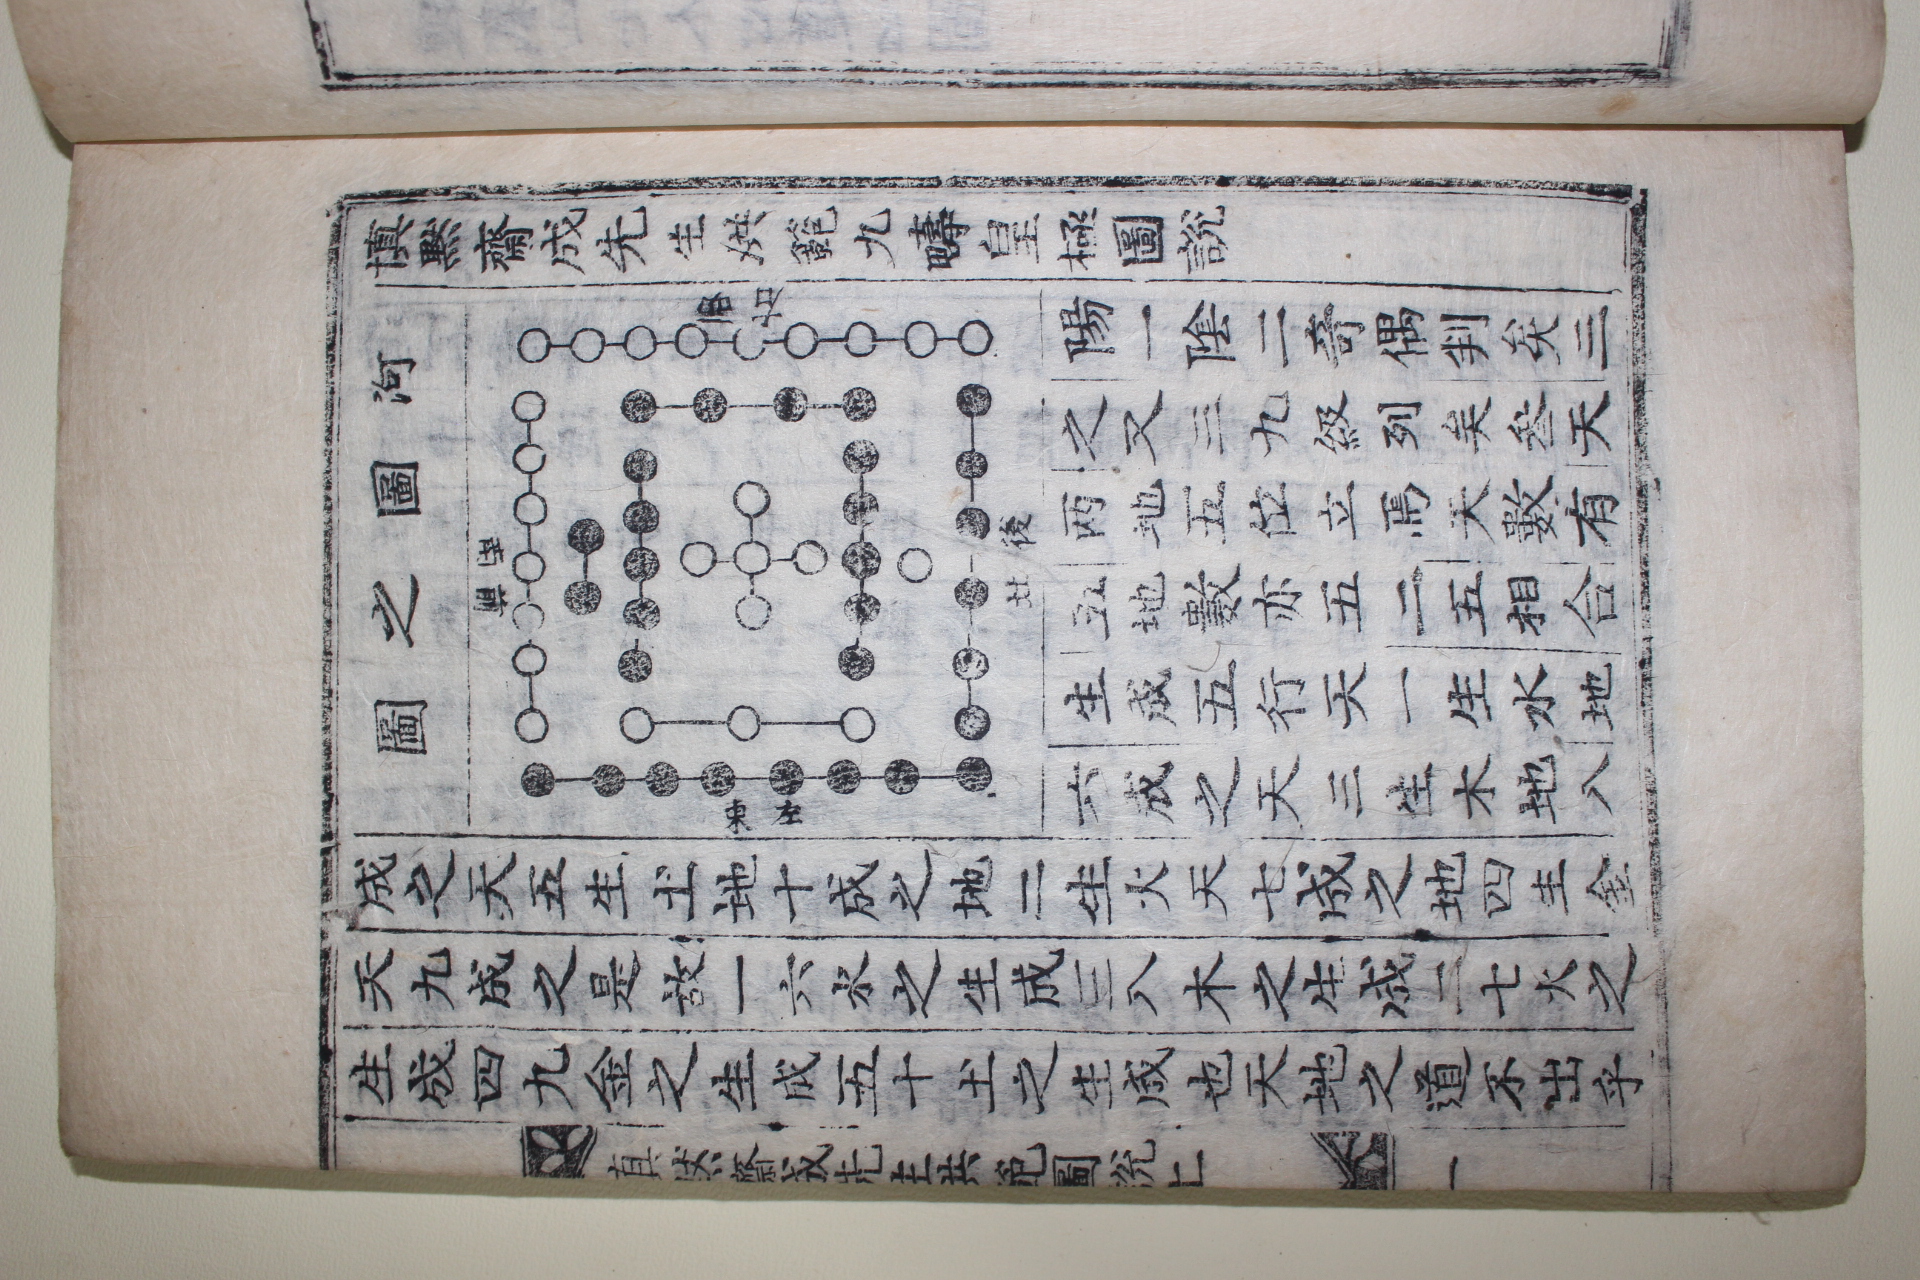 慎默齋成先生洪範九疇皇極圖說
河圖之圖
南前
西右
東左
北後
陽一陰二奇偶判矣三
之又三九級列矣叄天
兩地五位立焉天數有
五地數亦五二五相合
生成五行天一生水地
六成之天三生木地八
成之天五生土地十成之地二生火天七成之地四生金
天九成之是故一六水之生成三八木之生成二七火之
生成四九金之生成五十土之生成也天地之道不出乎
真默齋成先生洪範圖說上
一